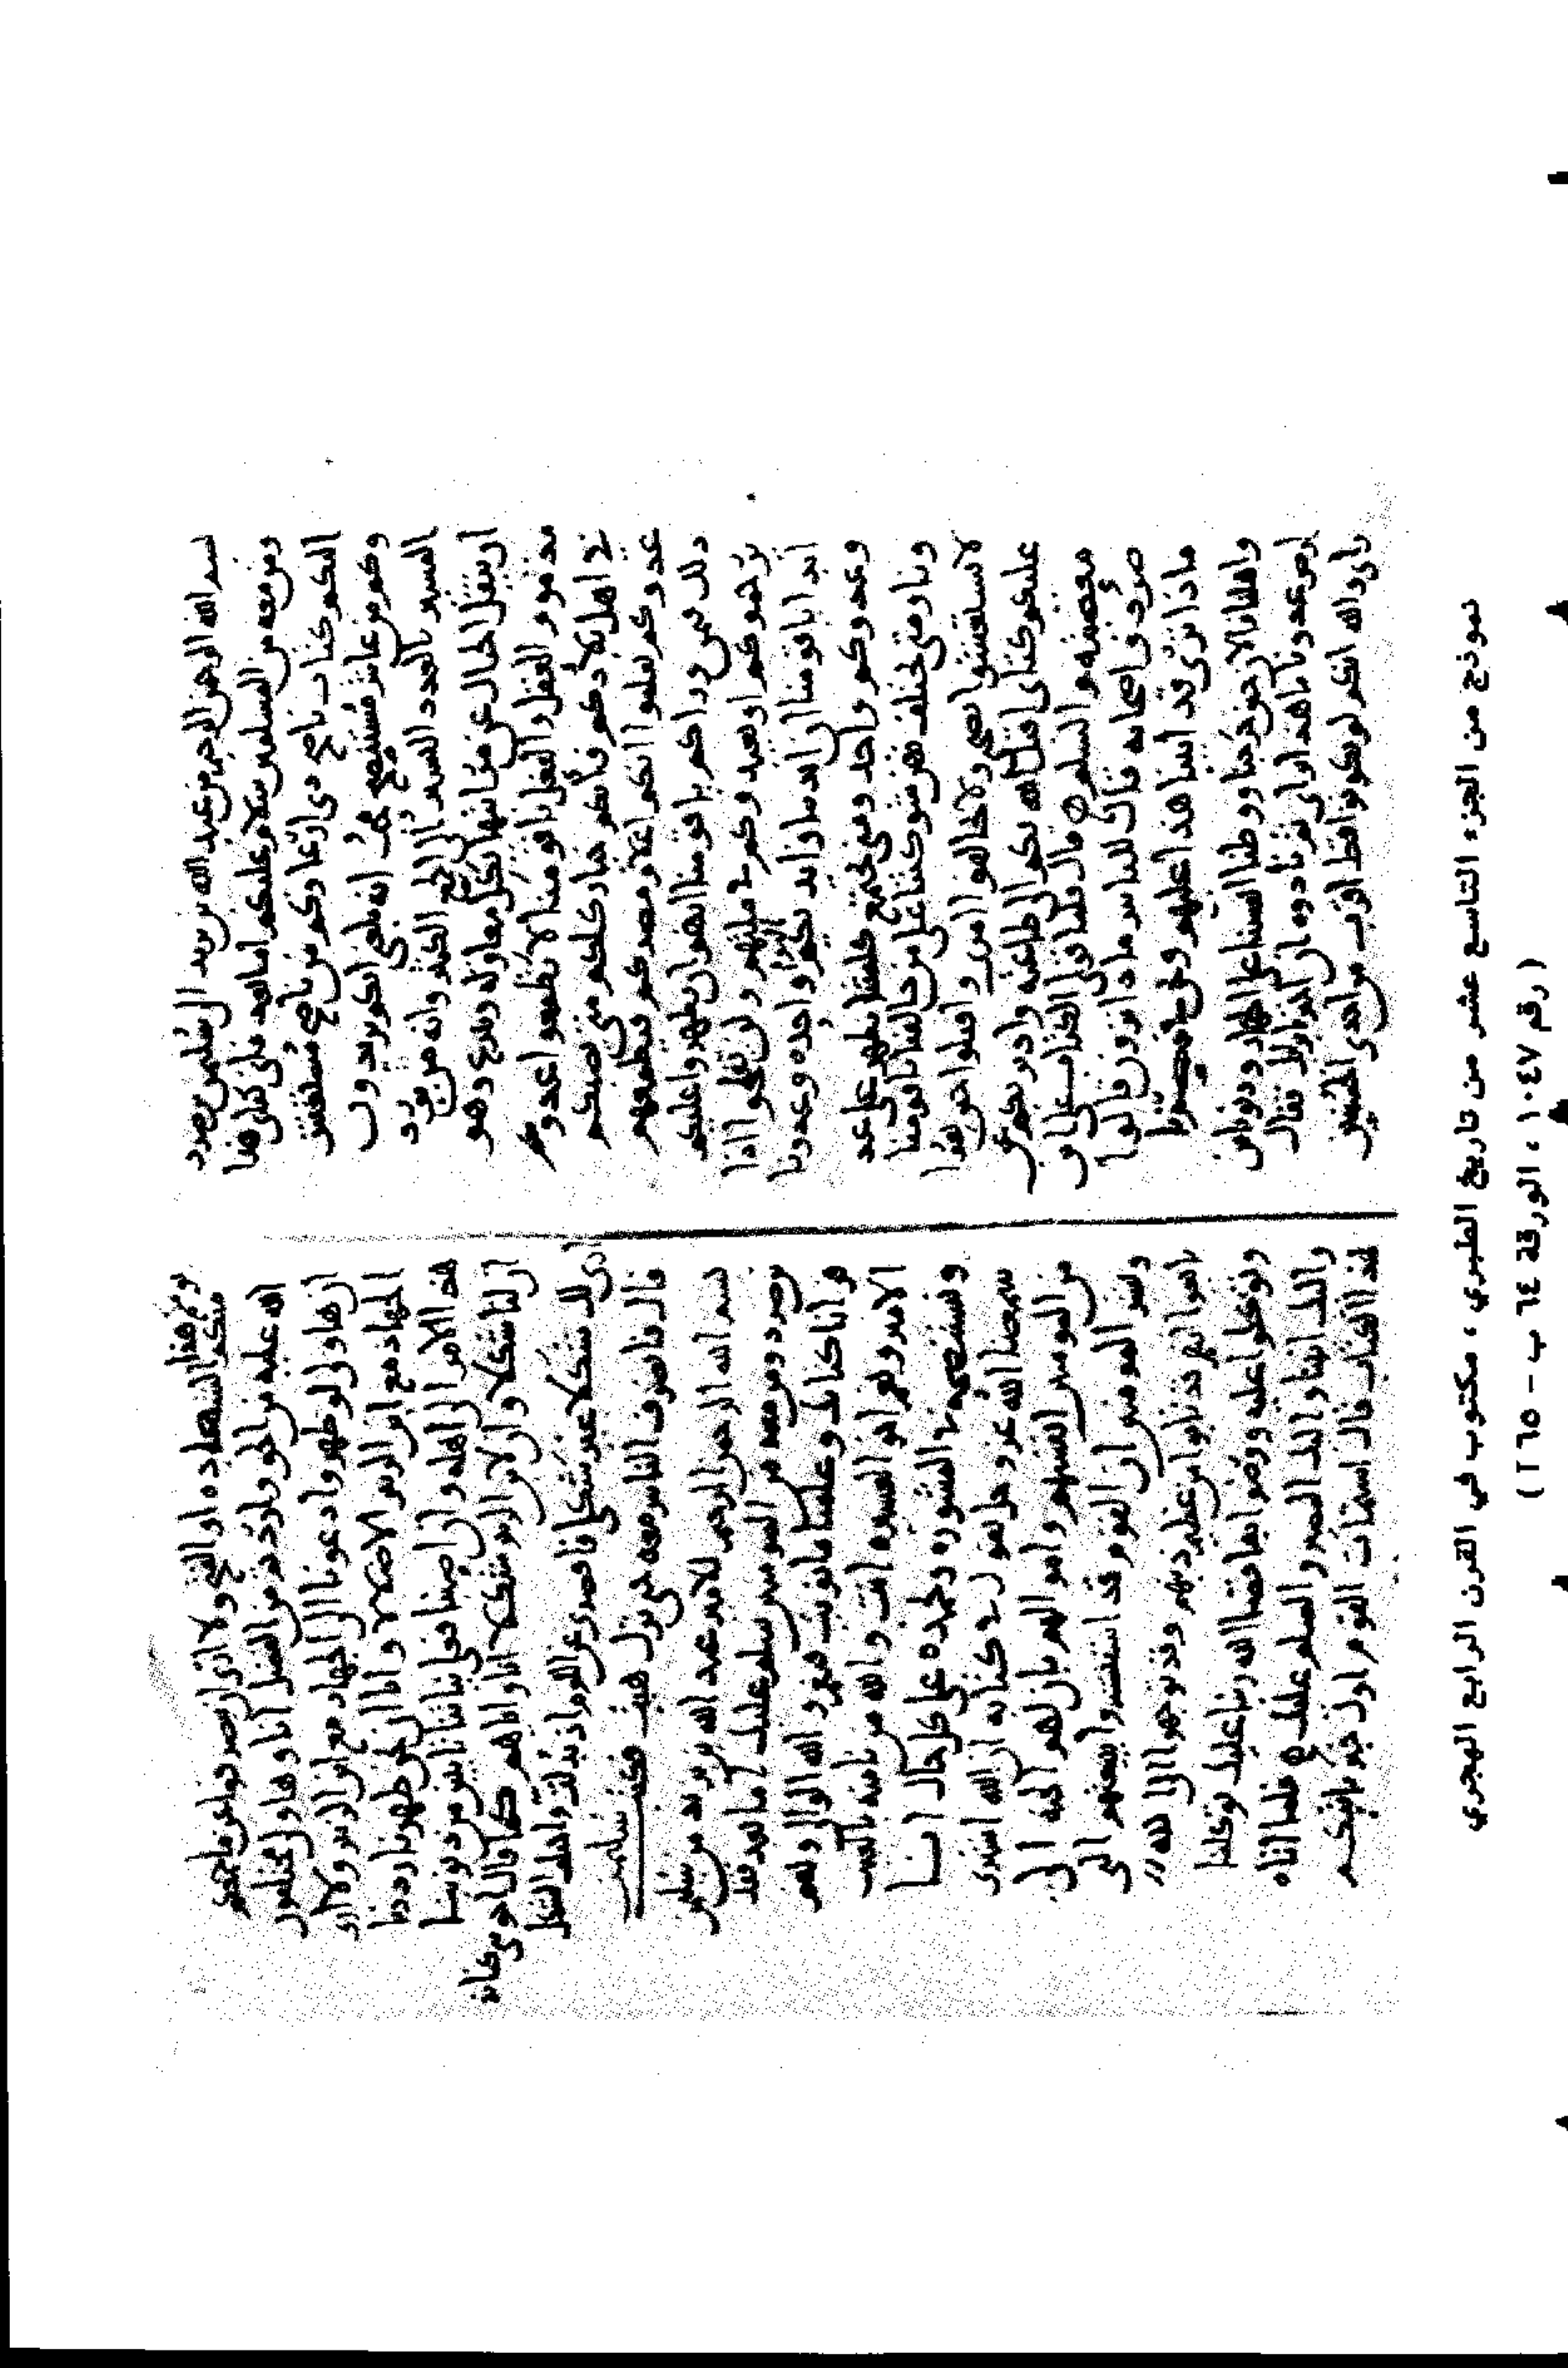 بسم الله الرحمن الرحيم من عبد الله بن يزيد الى سليمن بن صرد
ومن معه من المسلمين سلام عليكم اما بعد فان كتابي هذا
اليكم كتاب ناصح ذي ارعا وكم من ناصح مستغش
وكم من غاش مستنصح محب انه بلغني انكم تريدون
المسير بالعدد اليسير الى الجمع الكثير وانه من يرد
ان ينقل الجبال عن مراتبها تكل معاوله وينزع وهو
مذموم العقل والفعل يا قومنا لا تطمعوا عدوكم
في اهل بلادكم فانكم خيار كلكم متى يصبكم
عدوكم يعلموا انكم اعلام مصركم فيطمعهم
ذلك فيمن وراكم يا قومنا انهم ان يظهروا عليكم
يرجموكم او يعيدوكم في ملتهم ولن تفلحوا اذا
ابدا يا قومنا ان ايدينا وايديكم اليوم واحده وعدونا
وعدوكم واحد ومتى تجتمع كلمتنا نظهر على عد
ونا ومتى تختلف تهن شوكتنا على من خالفنا يا قومنا
لا تستغشوا نصحي ولا تخالفوا امري واقبلوا حين يقرا
عليكم كتابي اقبل الله بكم الى طاعته وادبر بكم عن
معصيته والسلم ه قال فلما قرئ الكتاب على ابن
صرد واصحابه قال للناس ماذا ترون قالوا
ماذا ترى قد ابينا هذا عليهم ونحن في مصرنا
واهلنا فالان حين خرجنا ووطنا انفسنا على الجهاد ودنونا من
ارض عدونا ما هذا براي ثم نادوه ان اخبرنا برايك فقال
راي والله انكم لم تكونوا قط اقرب من احدى الحسنيين
منكم يومكم هذا الشهاده او الفتح ولا ارى ان تنصرفوا عن ما جمعكم
الله عليه من الحق واردتم من الفضل انا وهاولا مختلفون
ان هاولا لو ظهروا دعونا الى الجهاد مع ابن الزبير ولا ارى
الجهاد مع ابن الزبير الا ضلالا وانا ان نحن ظهرنا رددنا
هذا الامر الى اهله وان اصبنا فعلى نياتنا تايبين من ذنوبنا
ان لنا شكلا وان لابن الزبير شكلا انا واياهم كما قال اخو بني كنانه
ارى لك شكلا غير شكلي فاقصري عن اللوم اذ بدلت واختلف الشكل
قال فانصرف الناس معه حتى نزل هيت فكتب سليمن
بسم الله الرحمن الرحيم للامير عبد الله بن يزيد من سليمن
بن صرد ومن معه من المومنين سلم عليك اما بعد فقد
قرانا كتابك وعلمنا ما نويت فنعم والله الوالي ونعم
الامير ونعم اخو العشيره انت والله من نامنه بالغيب
ونستنصحه في المشوره ونحمده على كل حال انا
سمعنا الله عز وجل يقول في كتابه ان الله اشترى
من المومنين انفسهم واموالهم بان لهم الجنه الى
وبشر المومنين ان القوم قد استبشروا ببيعتهم التي
بايعوا انهم قد تابوا من عظيم ذنبهم وقد توجهوا الى الله
وتوكلوا عليه ورضوا بما قضا الله ربنا عليك توكلنا
واليك انبنا واليك المصير والسلم عليك ه فلما اتاه
هذا الكتاب قال استمات القوم اول خبر ياتيكم
نموذج من الجزء التاسع عشر من تاريخ الطبري ، مكتوب في القرن الرابع الهجري
( رقم ١٠٤٧ ، الورقة ٦٤ ب - ٦٥ أ )